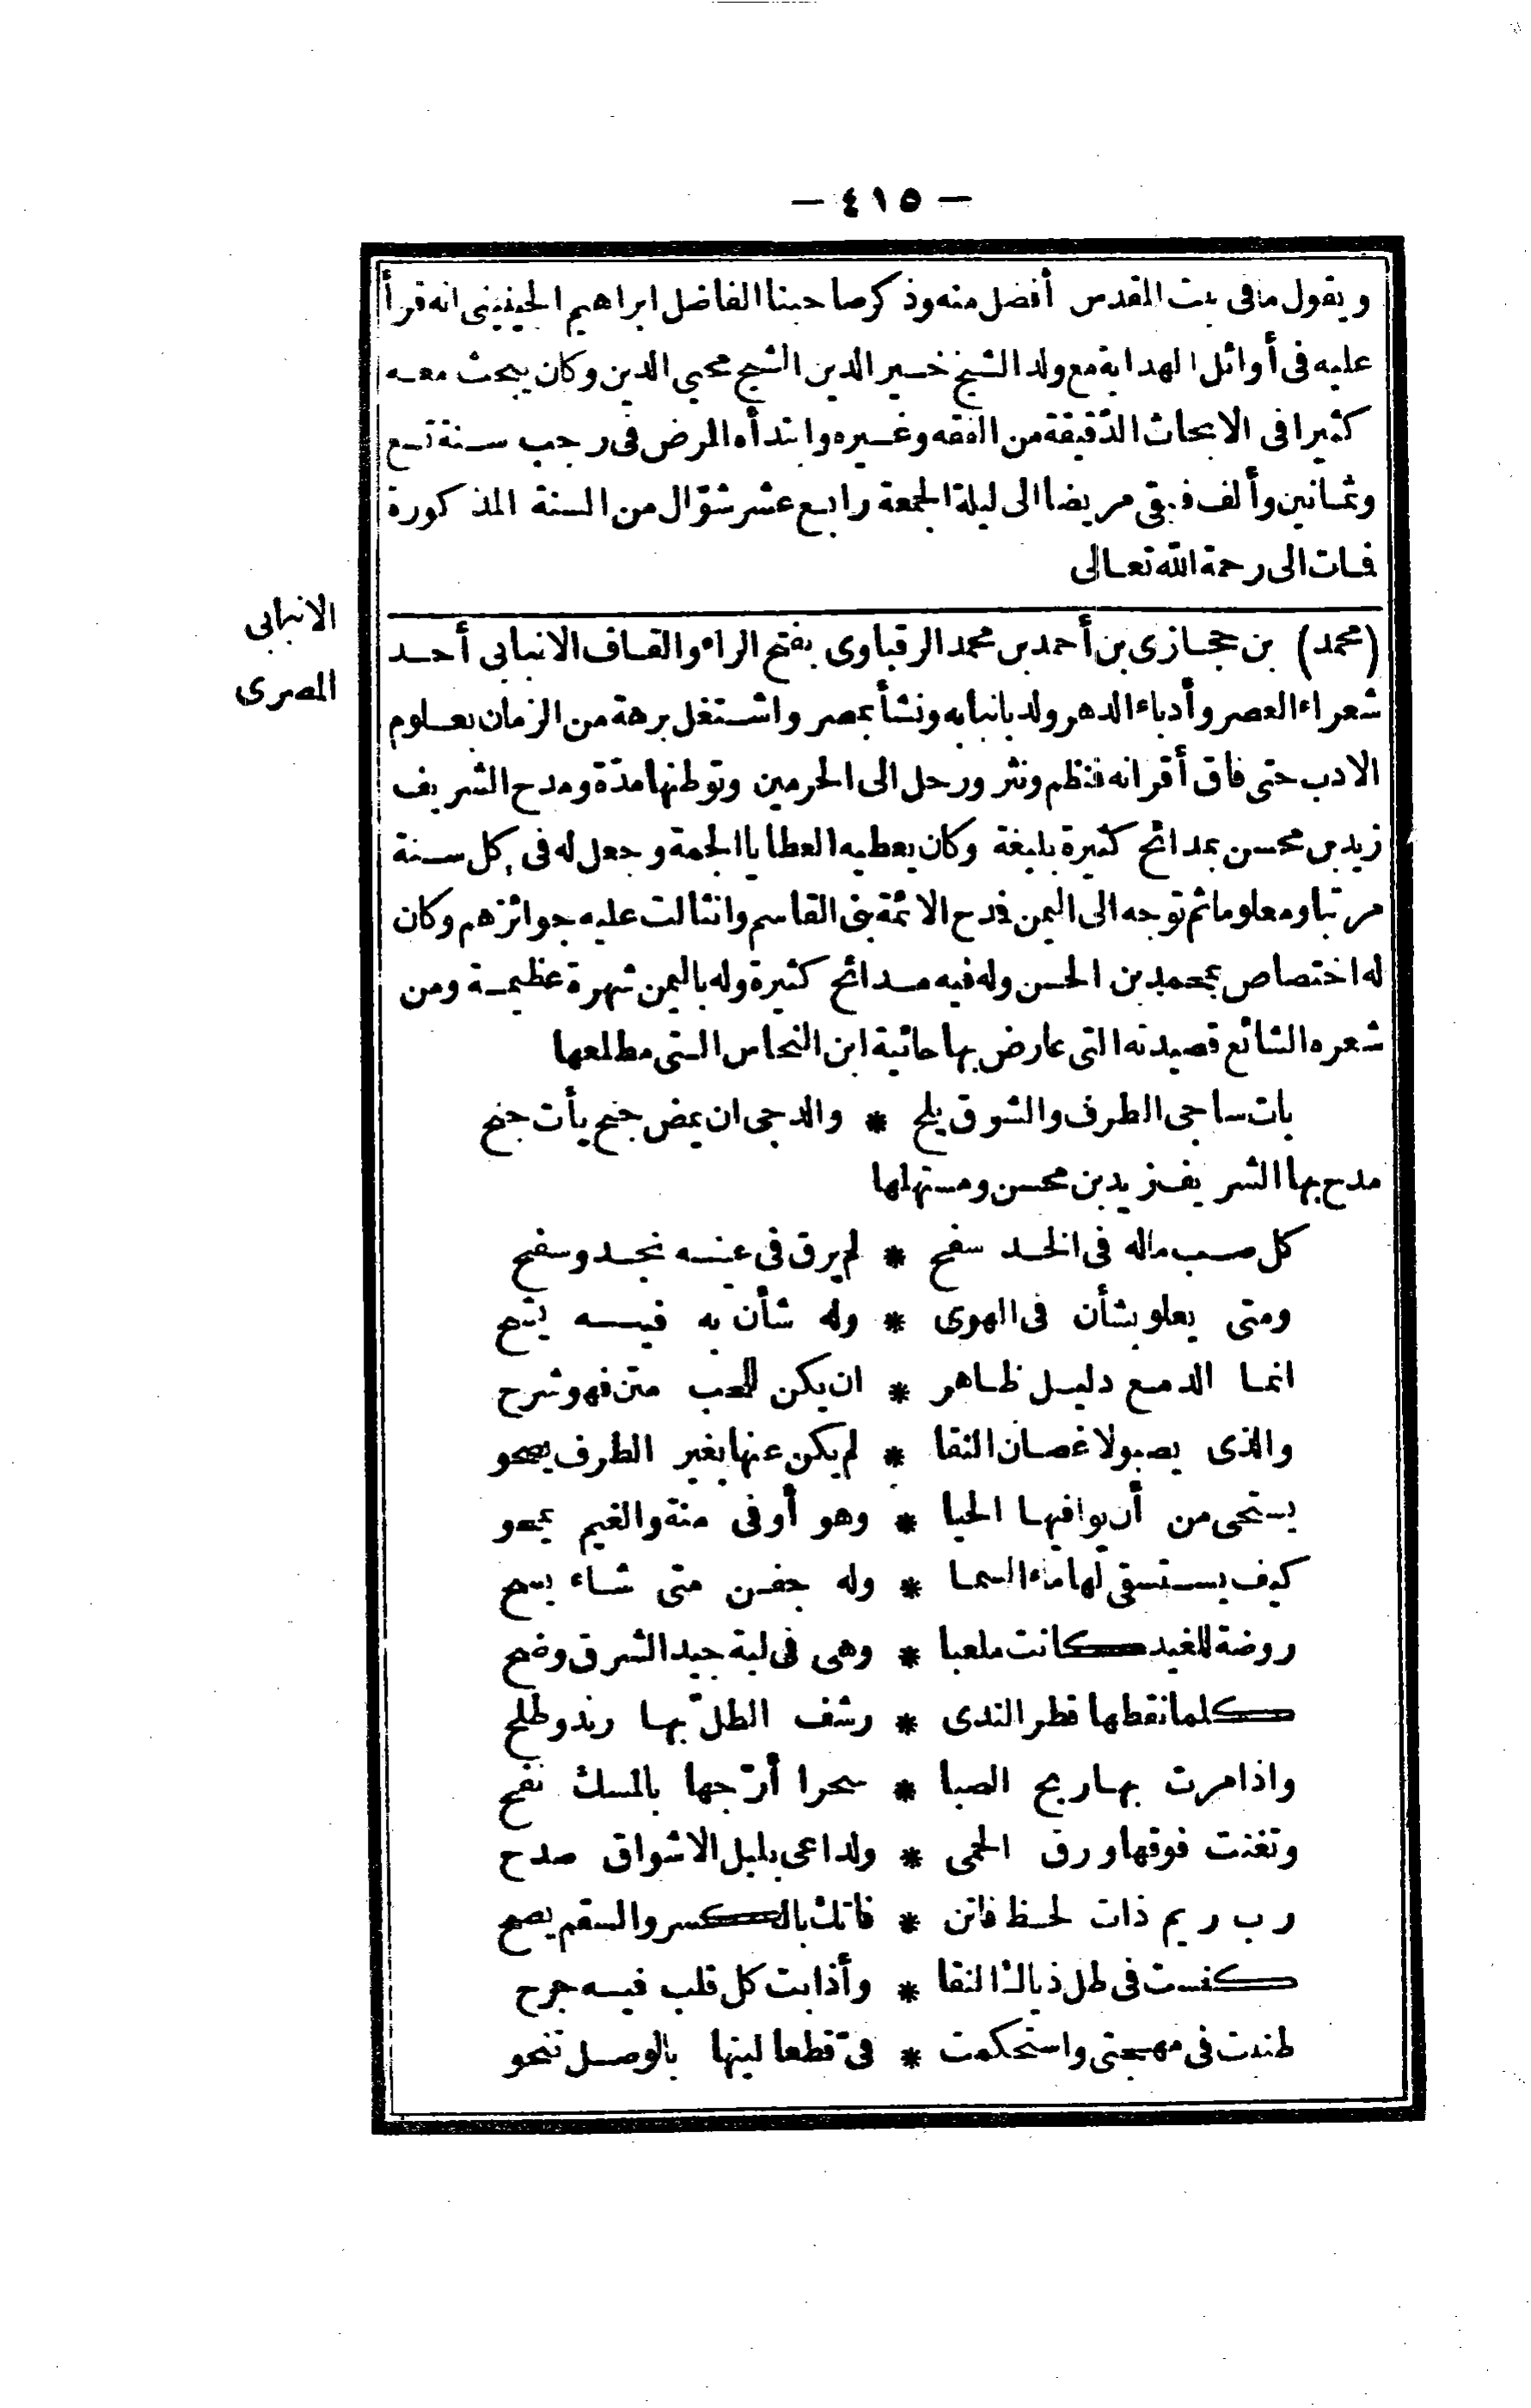 — ٤١٥ —
ويقول ما فى بيت المقدس أفضل منه وذكر صاحبنا الفاضل ابراهيم الجينينى انه قرأ
عليه فى أوائل الهداية مع ولد الشيخ خير الدين الشيخ محيى الدين وكان يبحث معه
كثيرا فى الابحاث الدقيقة من الفقه وغيره وابتدأه المرض فى رجب سنة تسع
وثمانين وألف فبقى مريضا الى ليلة الجمعة رابع عشر شوّال من السنة المذكورة
فمات الى رحمة الله تعالى
الانبابى
المصرى
(محمد) بن حجازى بن أحمد بن محمد الرقباوى بفتح الراء والقاف الانبابى أحد
شعراء العصر وأدباء الدهر ولد بانبابه ونشأ بمصر واشتغل برهة من الزمان بعلوم
الادب حتى فاق أقرانه فنظم ونثر ورحل الى الحرمين وتوطنها مدّة ومدح الشريف
زيد بن محسن بمدائح كثيرة بليغة وكان يعطيه العطايا الجمة وجعل له فى كل سنة
مرتبا ومعلوما ثم توجه الى اليمن فمدح الائمة بنى القاسم وانثالت عليه جوائزهم وكان
له اختصاص بمحمد بن الحسن وله فيه مدائح كثيرة وله باليمن شهرة عظيمة ومن
شعره الشائع قصيدته التى عارض بها حائية ابن النحاس التى مطلعها
بات ساجى الطرف والشوق يلح * والدجى ان يمض جنح يأت جنح
مدح بها الشريف زيد بن محسن ومستهلها
كل صب ماله فى الخد سفح * لم يرق فى عينه نجد وسفح
ومتى يعلو بشأن فى الهوى * وله شأن به فيه يشح
انما الدمع دليل ظاهر * ان يكن للحب متن فهو شرح
والذى يصبو لاغصان النقا * لم يكن عنها بغير الطرف يصحو
يستحى من أن يوافيها الحيا * وهو أوفى منة والغيم يمحو
كيف يستسقى لها ماء السما * وله جفن متى شاء يسح
روضة للغيد كانت ملعبا * وهى فى لبة جيد الشرق وضح
كلما نقطها قطر الندى * رشف الطلّ بها رند وطلح
واذا مرت بها ريح الصبا * سحرا أرّجها بالمسك نفح
وتغنت فوقها ورق الحمى * ولداعى بلبل الاشواق صدح
رب ريم ذات لحظ فاتن * فاتك بالكسر والسقم يصح
كنست فى ظل ذياك النقا * وأذابت كل قلب فيه جرح
طنبت فى مهجتى واستحكمت * فىّ قطعا ليتها بالوصل تنحو